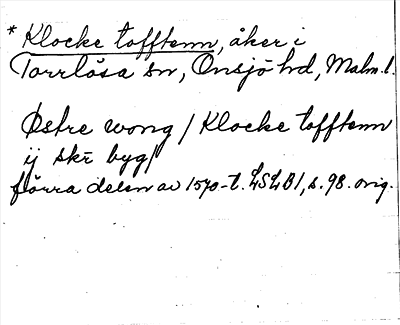 * Klocke tofftenn, åker i
Torrlösa sn, Onsjö hd, Malm. l.
Østre wong / Klocke tofftenn
ij skr byg/
förra delen av 1570-t. LSLB1, s. 98. orig.